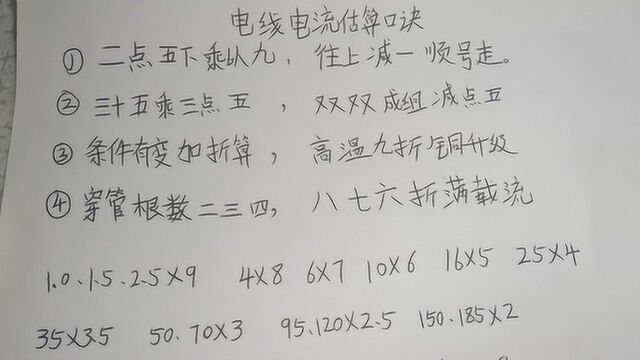 电线电流估算口诀
① 二点五下乘以九，往上减一顺号走。
② 三十五乘三点五，双双成组减点五
③ 条件有变加折算，高温九折铜升级
④ 穿管根数二三四，八七六折满载流
1.0、1.5、2.5×9 4×8 6×7 10×6 16×5 25×4
35×3.5 50、70×3 95、120×2.5 150、185×2